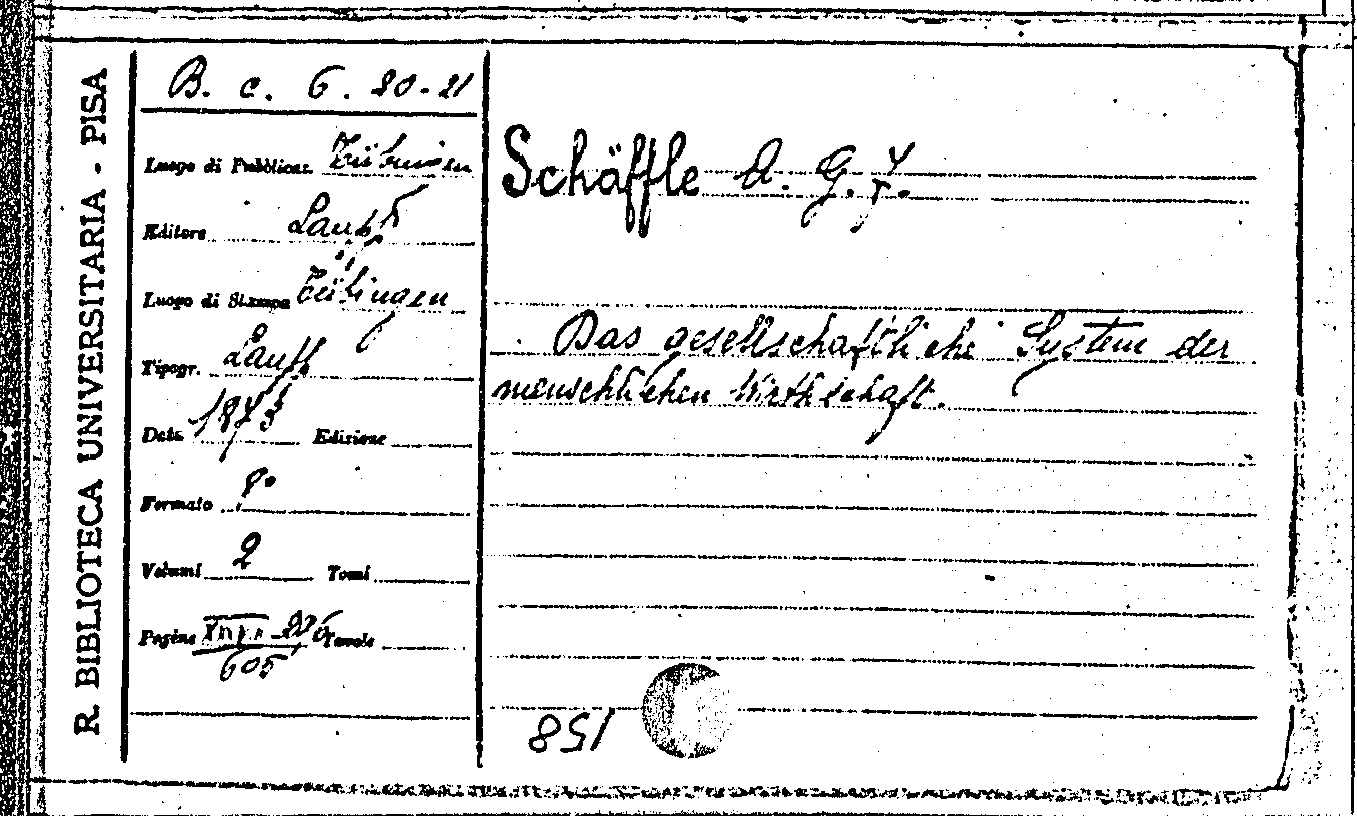 R. BIBLIOTECA UNIVERSITARIA - PISA
B. c. 6. 20-21
Luogo di Pubblicaz. Tübingen
Editore Laupp
Luogo di Stampa Tübingen
Tipogr. Laupp
Data 1873 Edizione
Formato 8°
Volumi 2 Tomi
Pagine Tavole
605
Schäffle A. G. F.
Das gesellschaftliche System der
menschlichen Wirthschaft.
158